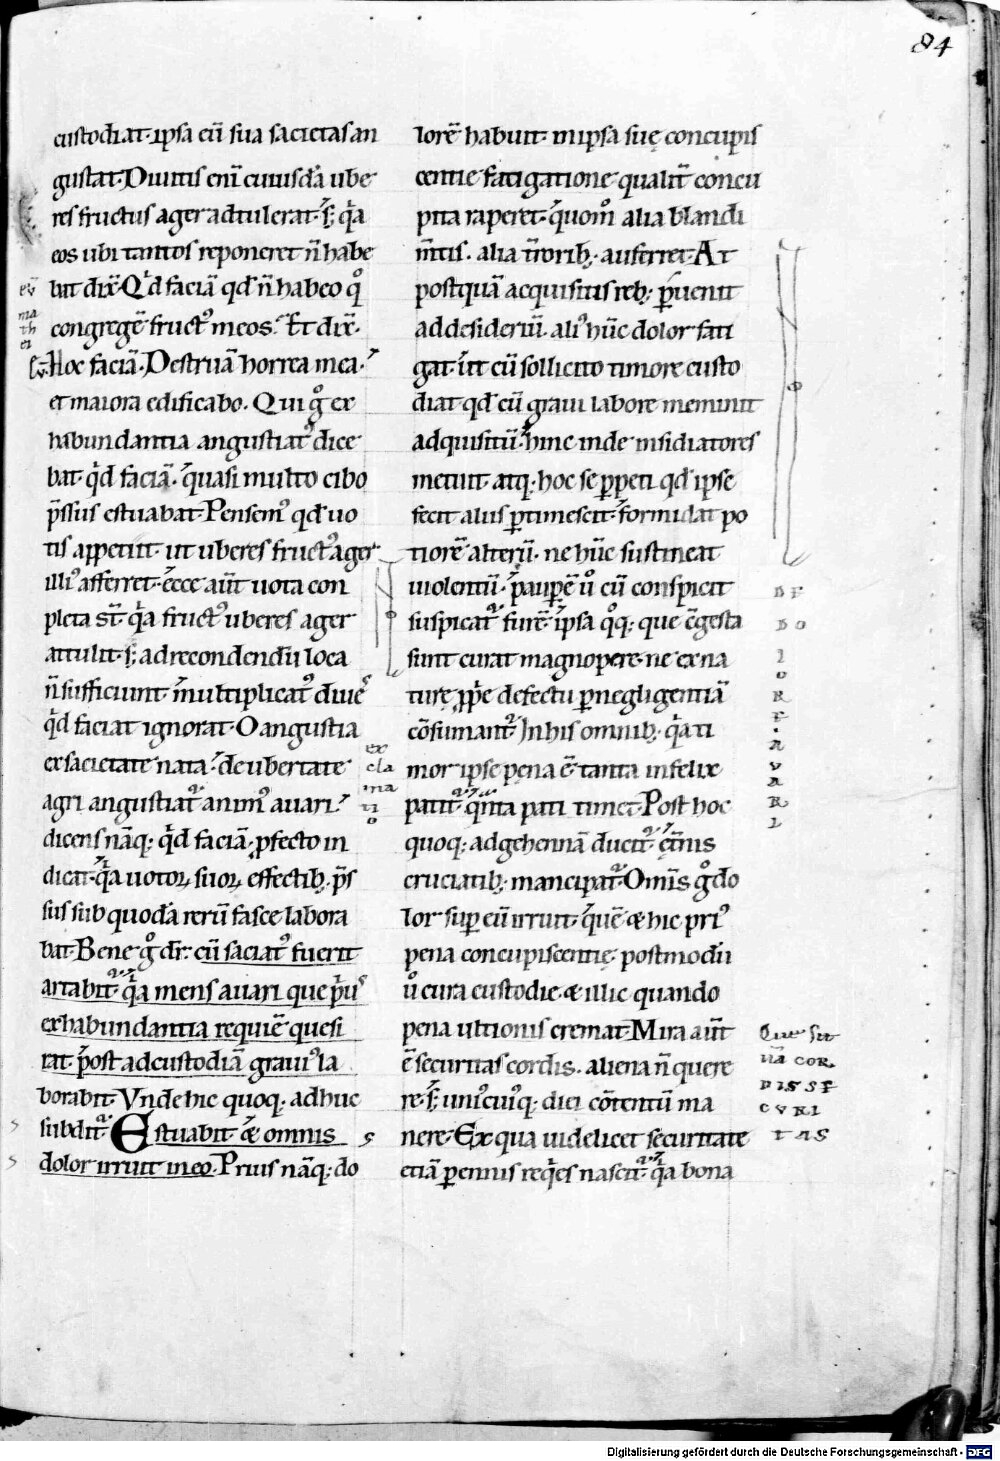 84
custodiat·ipsa cū sua sacietas an
gustat·Diuitis eni cuiusdā ube
res fructus ager adtulerat·s; qa
eos ubi tantos reponeret n̄ habe
bat dix̄·Qd faciā qd n̄ habeo qo
congregē fruct' meos· Et dix̄·
Hoc faciā·Destruā horrea mea·
et maiora edificabo·Qui go ex
habundantia angustiat' dice
bat·qd faciā·quasi multo cibo
p̄ssus estuabat·Pensem' qd uo
tis appetiit·ut uberes fruct' ager
illi' afferret·ecce aut̄ uota con
pleta st̄·qa fruct' uberes ager
attulit·s; ad recondendū loca
n̄ sufficiunt·multiplicat' diues
qd faciat ignorat·O angustia
ex sacietate nata·de ubertate
agri angustiat' anim' auari·
dicens nāq;·qd faciā·pfecto in
dicat·qa uotoꝝ suoꝝ effectib; p̄s
sus sub quodā rerū fasce labora
bat·Bene go dr̄·cū saciat' fuerit
artabit'·qa mens auari que p'us
ex habundantia requiē quesi
rat·post ad custodiā graui' la
borabit·Unde hic quoq; adhuc
subdit'·Estuabit·& omnis
dolor irruit in eo·Prius nāq; do
lorē habuit·in ipsa suę concupis
centie fatigatione·qualit̄ concu
pita raperet·quom̄ alia blandi
m̄tis·alia t̄rorib; auferret·At
postquā acquisitis reb; puenit
ad desideriū·ali' hūc dolor fati
gat·ut cū sollicito timore custo
diat·qd cū graui labore meminit
adquisitū·hinc inde insidiatores
metuit·atq; hoc se ppeti qd ipse
fecit aliis ptimescit·formidat po
tiorē alterū·ne hūc sustineat
uiolentū·paupē ū cū conspicit
suspicat' furē·ipsa qoq; que cgesta
sunt curat magnopere·ne ex na
turę ppe defectu p negligentiā
cōsumant'·In his omnib; qa ti
mor ipse pęna ē·tanta infelix
patit'·qnta pati timet·Post hoc
quoq; ad gehennā ducit'·et̄nis
cruciatib; mancipat'·Omis go do
lor sup eū irruit·quē & hic pri'
pena concupiscentię·postmodū
ū cura custodie·& illic quando
pena ultionis cremat·Mira aut̄
ē securitas cordis·aliena n̄ quere
re·s; uni'cui'q; diei cōtentū ma
nere·Ex qua uidelicet securitate
etiā pennis reqes nascit'·qa bona
ex
cla
ma
ti
o
DE
DO
l
o
R
E
A
V
A
R
I
Que sit
uā COR
DIS SE
CVRI
TAS